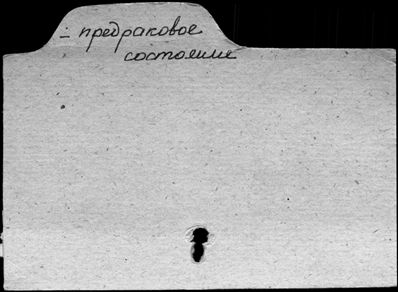 - предраковое
состояние